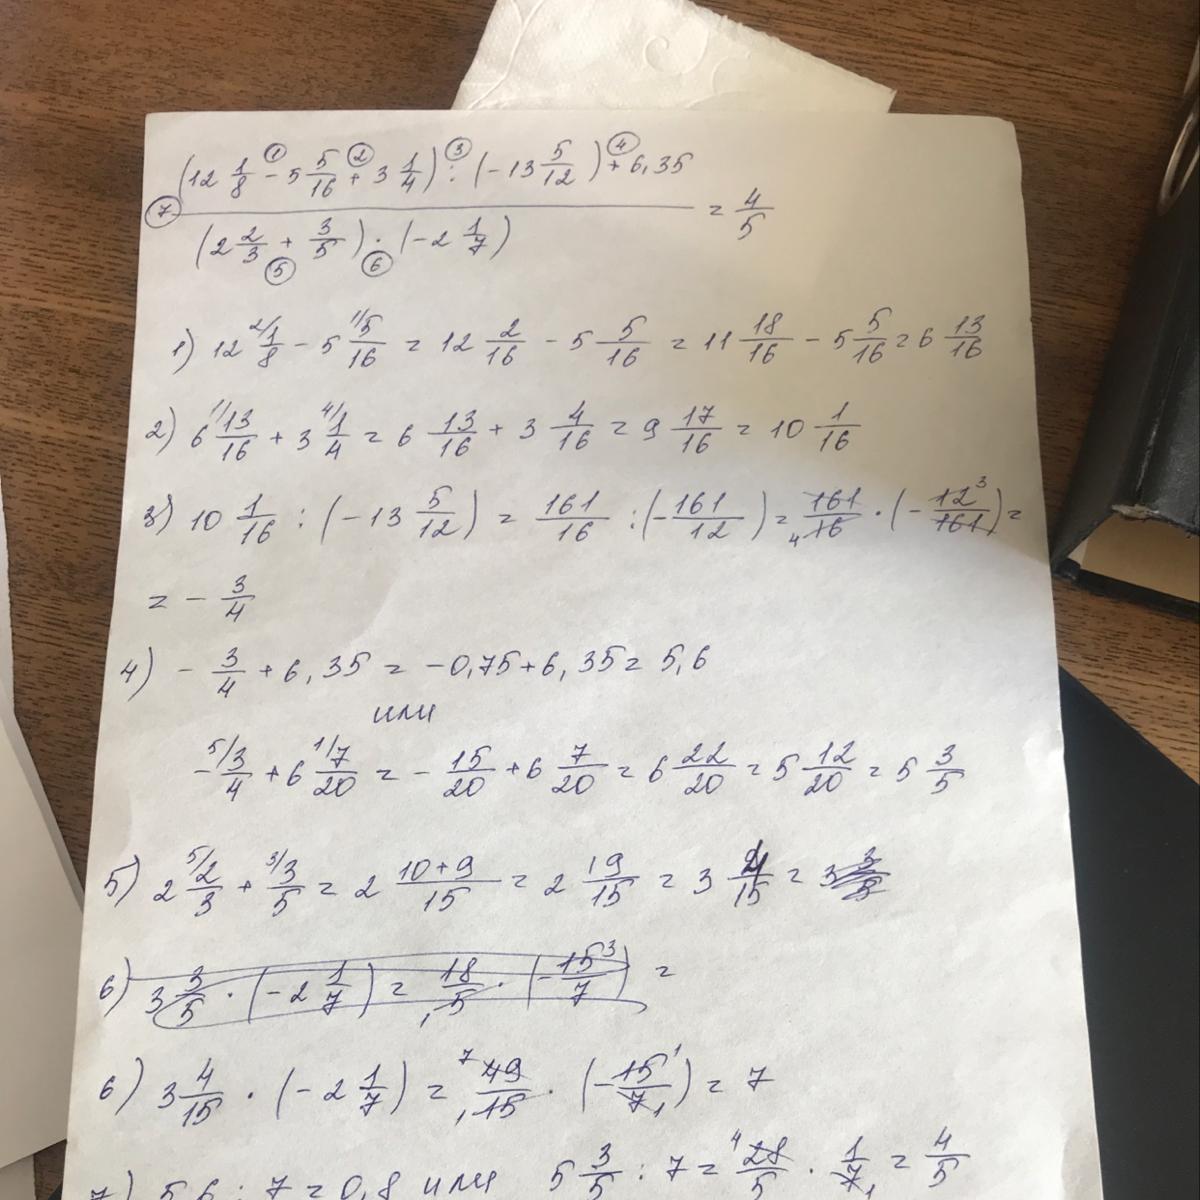 (12 1/8 - 5 5/16 + 3 1/4) : (-13 5/12) + 6,35
① ② ③ ④
⑦ = 4/5
(2 2/3 + 3/5) · (-2 1/7)
⑤ ⑥
1) 12 2/ 1/8 - 5 1/ 5/16 = 12 2/16 - 5 5/16 = 11 18/16 - 5 5/16 = 6 13/16
2) 6 1/ 13/16 + 3 4/ 1/4 = 6 13/16 + 3 4/16 = 9 17/16 = 10 1/16
3) 10 1/16 : (-13 5/12) = 161/16 : (-161/12) = 161/16 4 · (-12 3/161) =
= - 3/4
4) - 3/4 + 6,35 = -0,75 + 6,35 = 5,6
или
- 5/ 3/4 + 6 1/ 7/20 = - 15/20 + 6 7/20 = 6 22/20 = 5 12/20 = 5 3/5
5) 2 5/ 2/3 + 3/ 3/5 = 2 10+9/15 = 2 19/15 = 3 4/15 = 3 3/5
6) 3 3/5 · (-2 1/7) = 18/5 1 · (-15 3/7) =
6) 3 4/15 · (-2 1/7) = 7 49/15 1 · (-15 1/7 1) = 7
7) 5,6 : 7 = 0,8 или 5 3/5 : 7 = 4 28/5 · 1/7 1 = 4/5